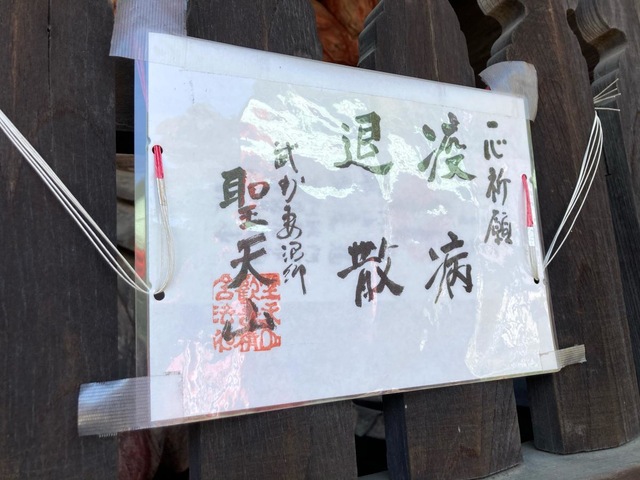 一心祈願
疫病
退散
武州妻沼郷
聖天山